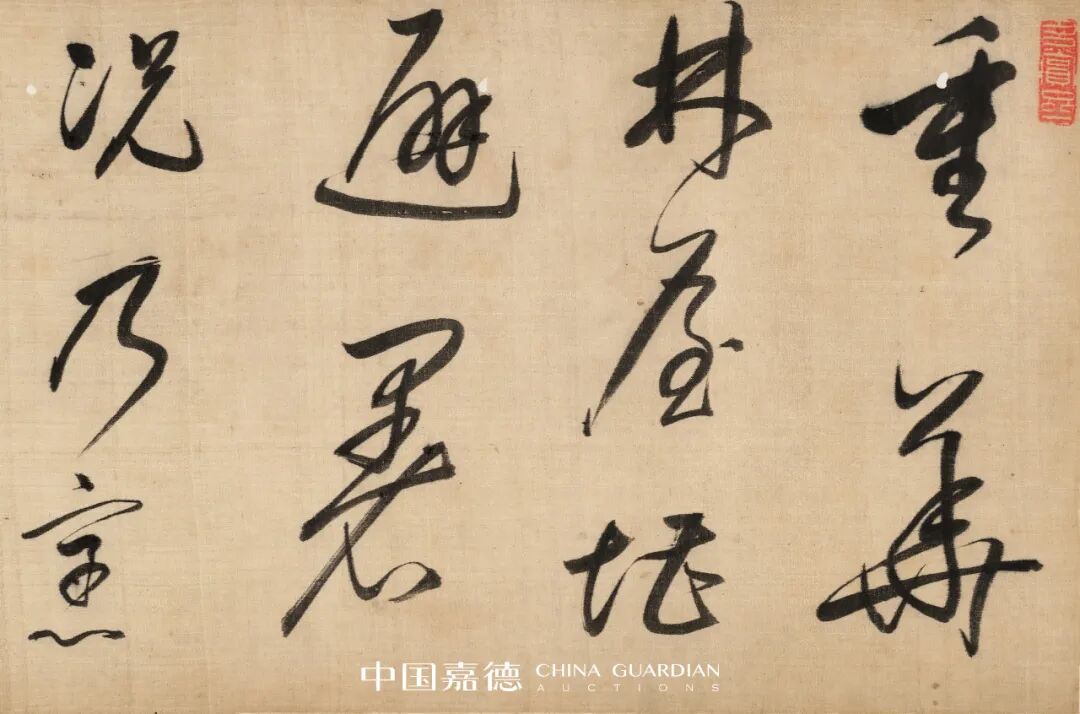 重華
林屋堪
避暑
況乃
中国嘉德 CHINA GUARDIAN
AUCTIONS